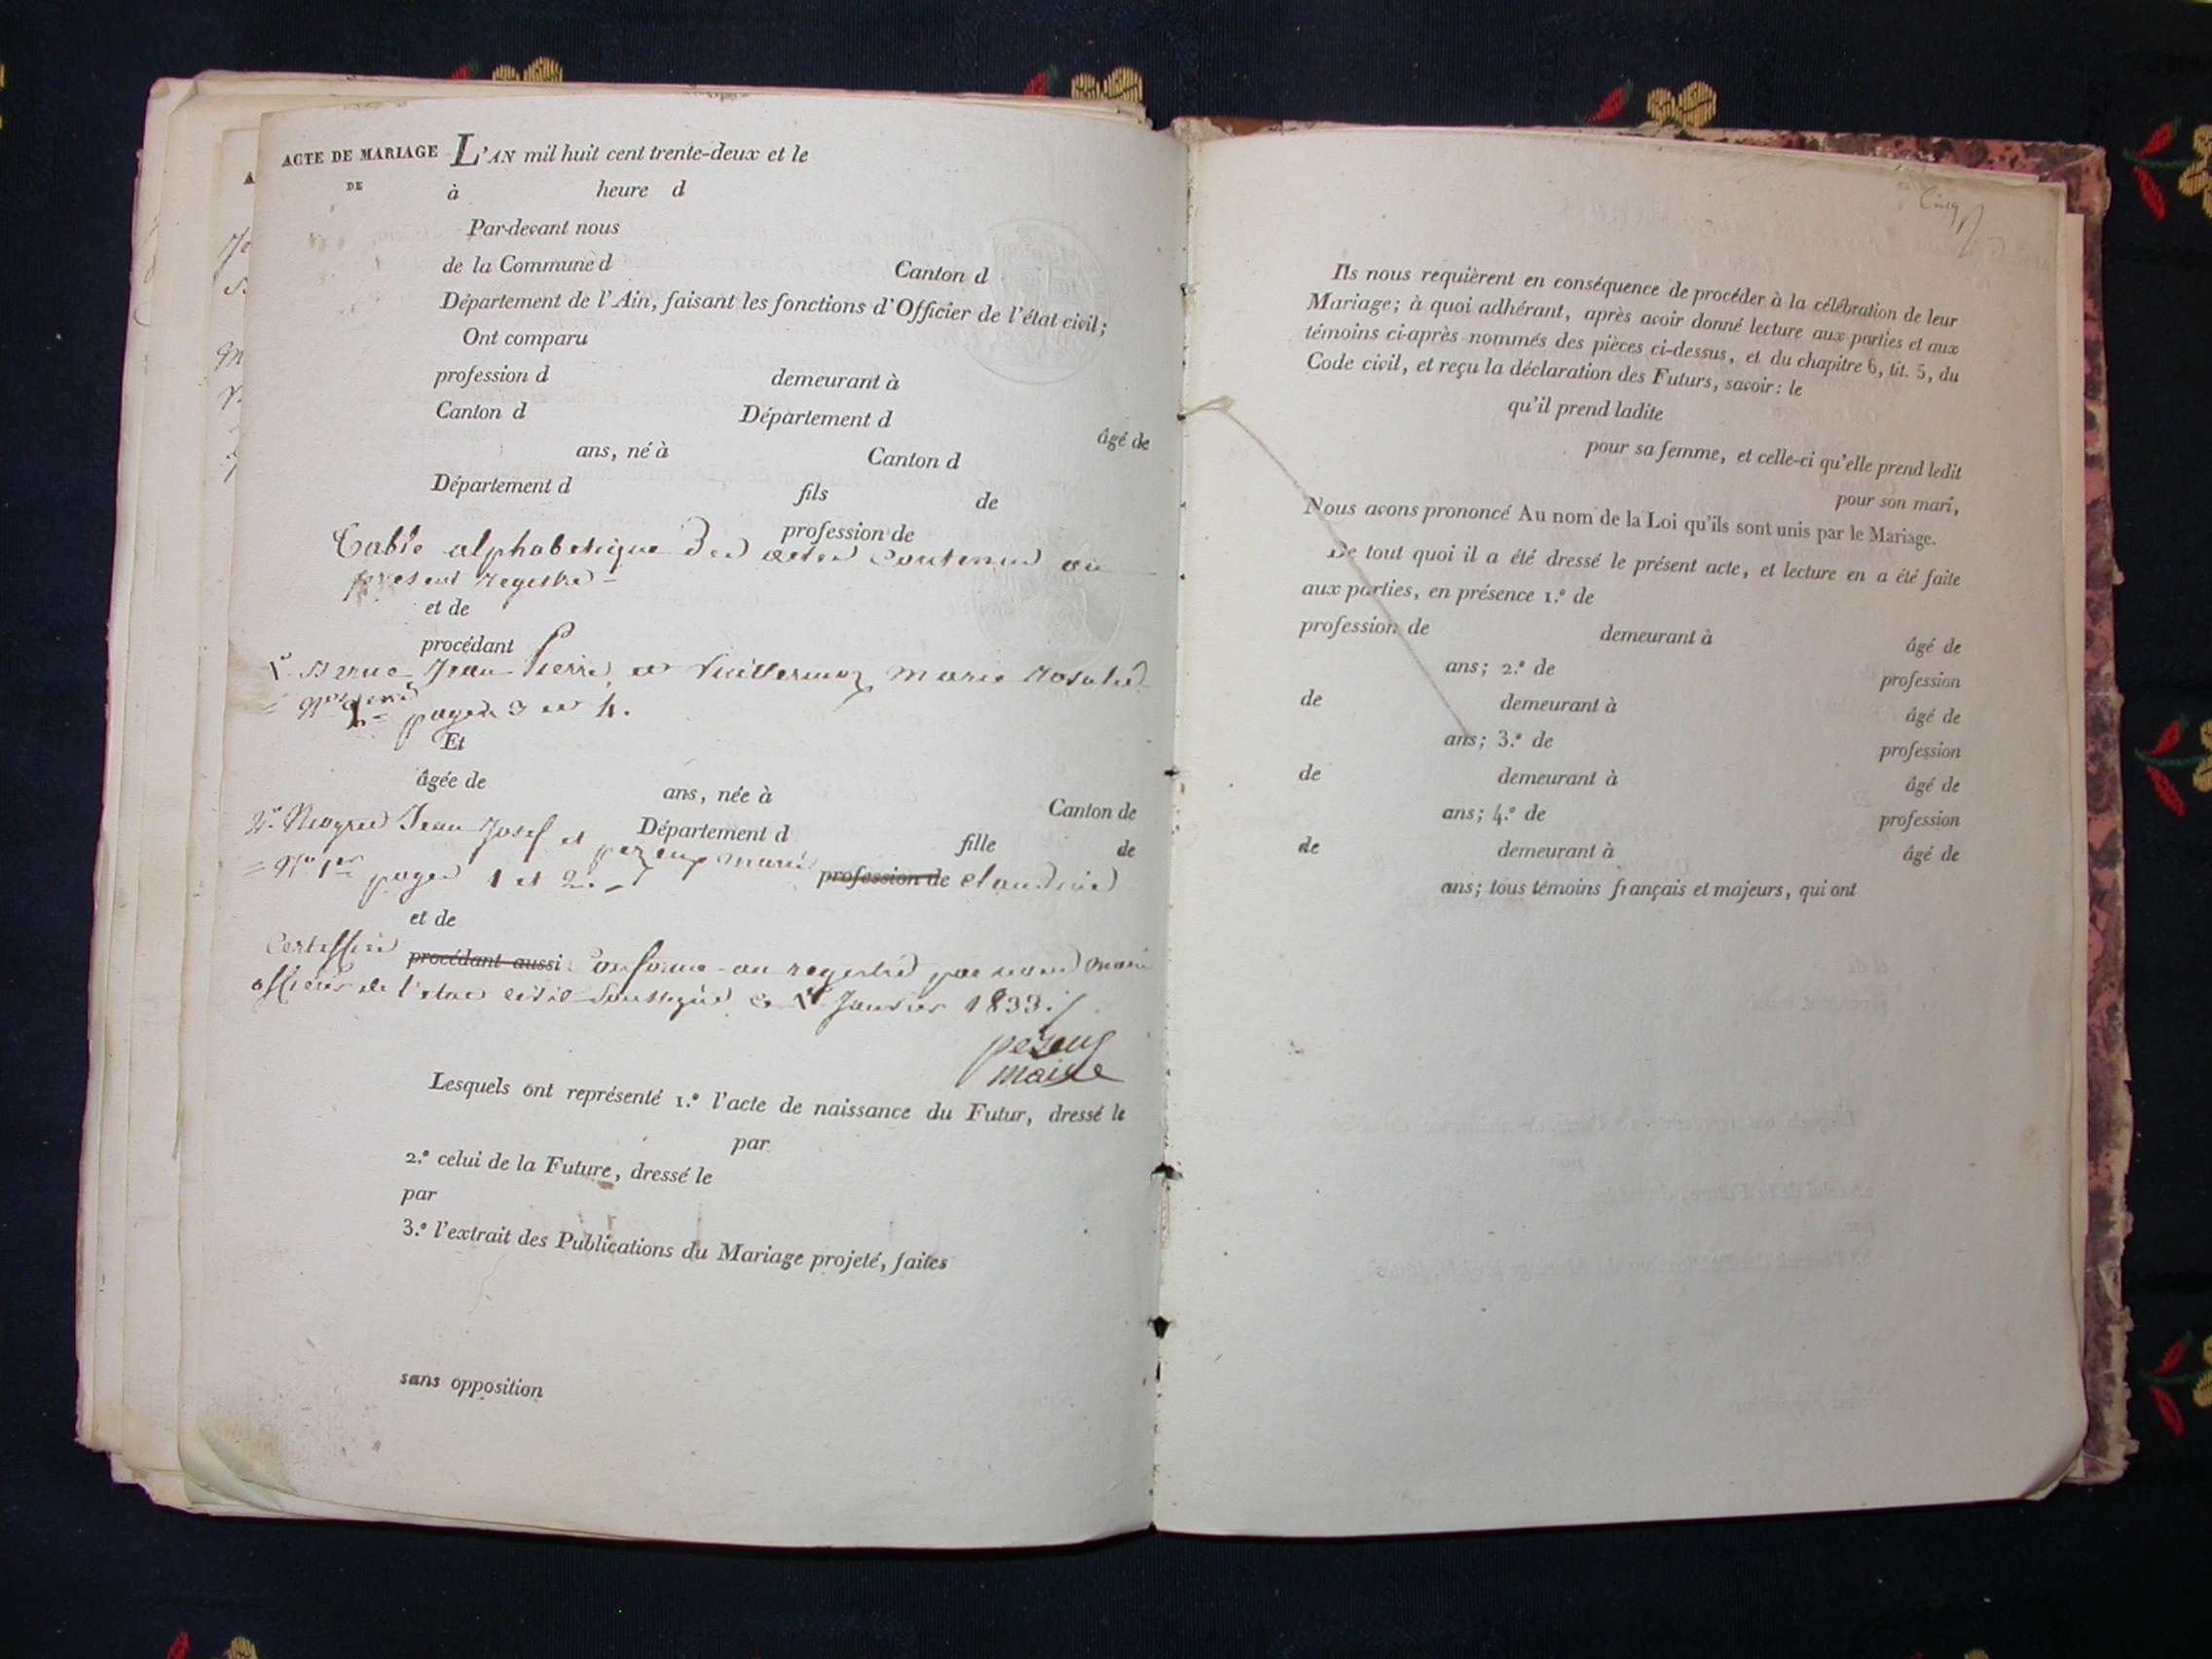 ACTE DE MARIAGE L'AN mil huit cent trente-deux et le
DE
à heure d
Par-devant nous
de la Commune d Canton d
Département de l'Ain, faisant les fonctions d'Officier de l'état civil;
Ont comparu
profession d demeurant à
Canton d Département d
âgé de
ans, né à Canton d
Département d fils de
profession de
Table alphabetique des actes contenus au
present registre
et de
procédant
Jean Pierre et Vuillermoz marie rosalie
pages 3 et 4.
Et
âgée de
ans, née à
Canton de
2° Jean Josef et
Département d
fille de
pezeux marie
profession de claudine
= N° 1er pages 1 et 2.
et de
Certiffié procédant aussi Conforme au registre par nous maire
officier de l'état civil soussigné ce 1er Janvier 1833
pezeux
maire
Lesquels ont représenté 1.° l'acte de naissance du Futur, dressé le
par
2.° celui de la Future, dressé le
par
3.° l'extrait des Publications du Mariage projeté, faites
sans opposition
Cinq
Ils nous requièrent en conséquence de procéder à la célébration de leur
Mariage; à quoi adhérant, après avoir donné lecture aux parties et aux
témoins ci-après nommés des pièces ci-dessus, et du chapitre 6, tit. 5, du
Code civil, et reçu la déclaration des Futurs, savoir: le
qu'il prend ladite
pour sa femme, et celle-ci qu'elle prend ledit
pour son mari,
Nous avons prononcé Au nom de la Loi qu'ils sont unis par le Mariage.
De tout quoi il a été dressé le présent acte, et lecture en a été faite
aux parties, en présence 1.° de
profession de demeurant à âgé de
ans; 2.° de profession
de demeurant à âgé de
ans; 3.° de profession
de demeurant à âgé de
ans; 4.° de profession
de demeurant à âgé de
ans; tous témoins français et majeurs, qui ont